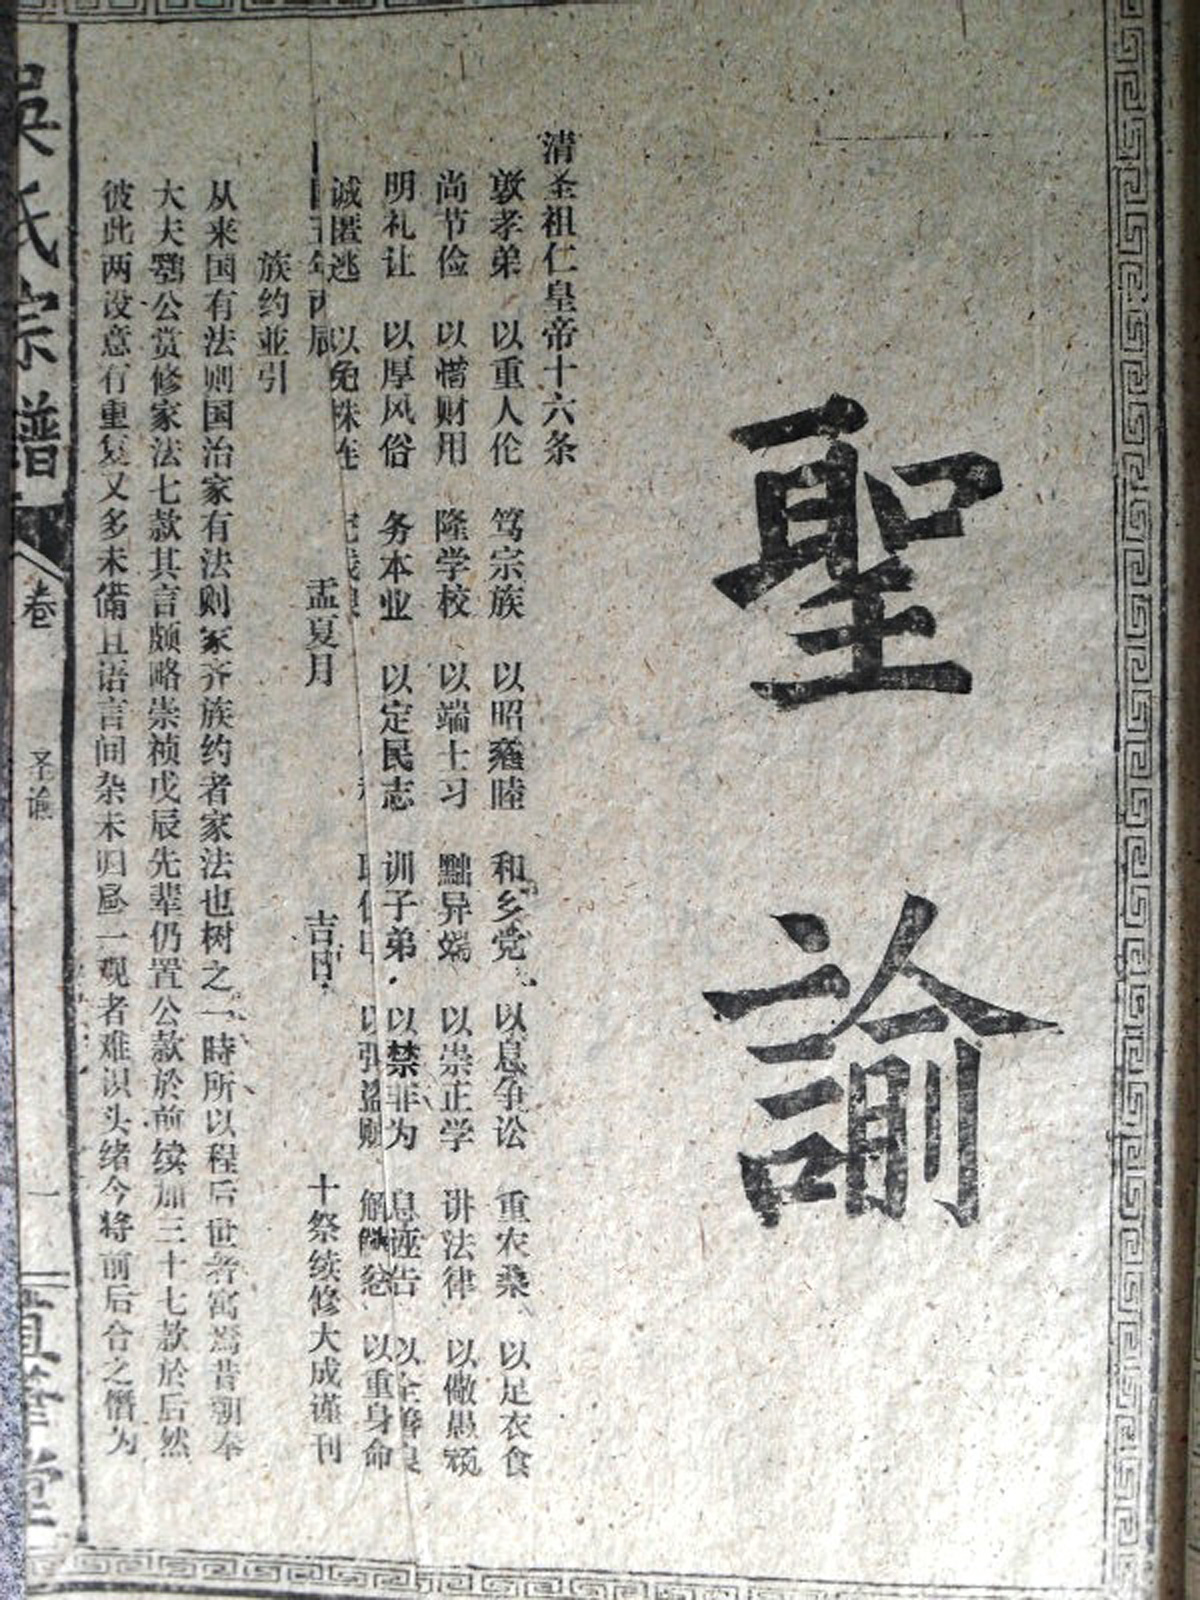 聖諭
清圣祖仁皇帝十六条
敦孝弟 以重人伦 笃宗族 以昭雍睦 和乡党 以息争讼 重农桑 以足衣食
尚节俭 以惜财用 隆学校 以端士习 黜异端 以崇正学 讲法律 以儆愚顽
明礼让 以厚风俗 务本业 以定民志 训子弟 以禁非为 息诬告 以全善良
诚匿逃 以免株连 以弭盗贼 解 忿 以重身命
年丙辰 孟夏月 吉日 十祭续修大成谨刊
族约並引
从来国有法则国治家有法则家齐族约者家法也树之一時所以程后世者寓焉昔朝奉
大夫鹗公赏修家法七款其言颇略崇祯戊辰先辈仍置公款於前续加三十七款於后然
彼此两设意有重复又多未備且语言间杂未归 一观者难识头绪今将前后合之 为
吳氏宗譜
卷
圣谕
一
堂